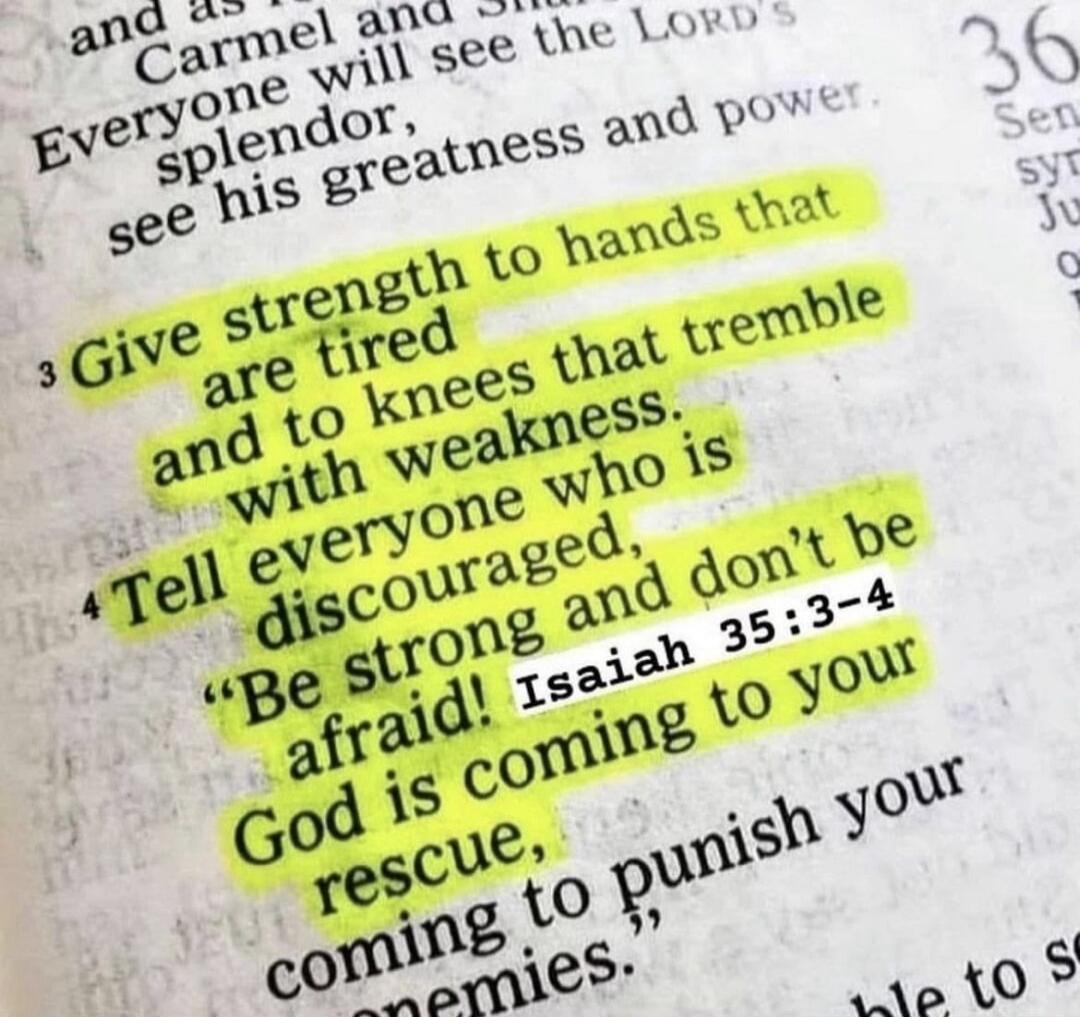 and as
Carmel and
Everyone will see the LORD's
splendor,
see his greatness and power.
3 Give strength to hands that
are tired
and to knees that tremble
with weakness.
4 Tell everyone who is
discouraged,
“Be strong and don't be
afraid! Isaiah 35:3-4
God is coming to your
rescue,
coming to punish your
enemies.”
to
36
Sen
syr
Ju